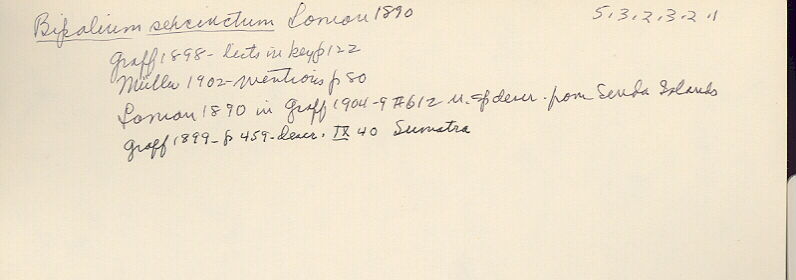 Bipalium succinctum Loman 1890 5.3.2.3.2.1
Graff 1898 - lists in key p 122
Müller 1902 - mentions p 80
Loman 1890 in Graff 1904-9 #612 n. sp descr. from Sunda Islands
Graff 1899 - p 459 - descr. IX 40 Sumatra